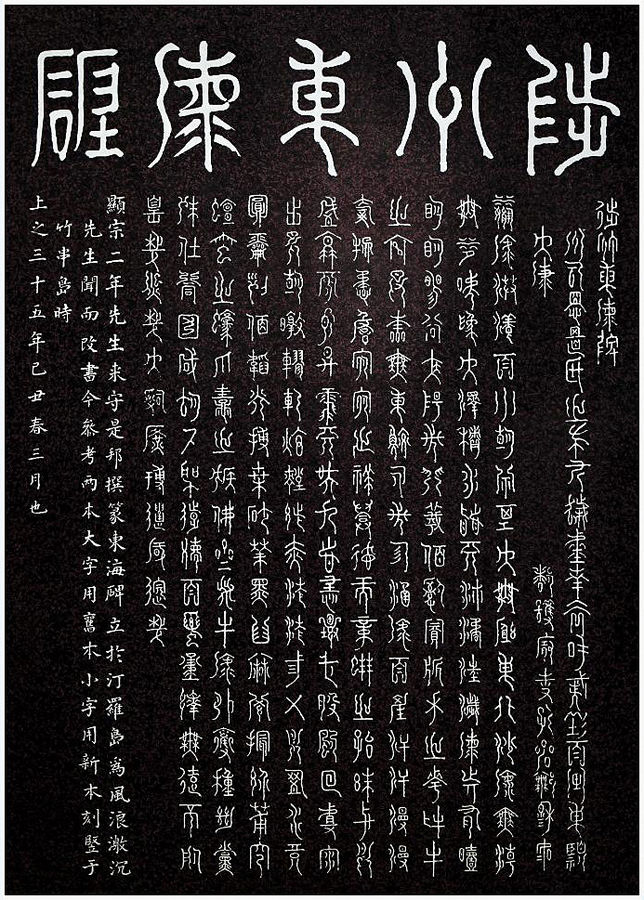 陟州東海碑
陟州東海碑
瀛海漭瀁百川朝宗其大無窮東北沙海無潮
無汐號為大澤積水稽天浡潏汪濊海動有曀
明明暘谷太陽之門羲伯司賓析木之次牝牛
之宮日本無東鮫人之珍涵海百產汗汗漫漫
奇物譎詭宛宛之祥興德而章蚌之胎珠與月
盛衰旁氣昇霏天吳九首怪夔一股颷回且雨
出日朝暾轇軋炫煌紫赤滄滄三五月盈水鏡
圓靈列宿韜光扶桑砂華黑齒麻羅撮髻莆家
蜒蠻之蠔爪蛙之猴佛齊之牛海外雜種絶黨
殊俗同囿咸育古聖遠德百蠻重譯無遠不服
皇哉熙哉大治廣博遺風邈哉
顯宗二年先生來守是邦撰篆東海碑立於汀羅島為風浪激沉
先生聞而改書今參考兩本大字用舊本小字用新本刻竪于
竹串島時
上之三十五年己丑春三月也